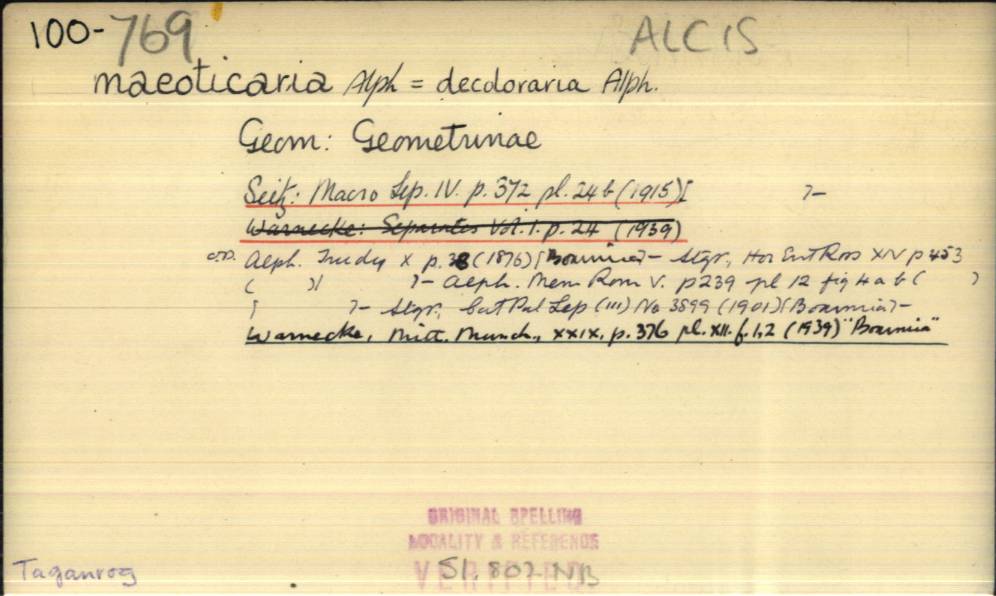 100-769 ALCIS
maeoticaria Alph = decoloraria Alph.
Geom: Geometrinae
Seitz: Macro Lep. IV. p. 372 pl. 24 b (1915)[ ]-
Warnecke: Separates Vol. 1. p. 24 (1939)
O.D. Alph. Trudy X p. 38 (1876) [Boarmia]- Stgr, Hor Ent Ross XIV p 453
( )( ]- Alph. Mem Rom V. p239 pl 12 fig 4 a b ( )
[ ]- Stgr, Cat Pal Lep (III) No 3899 (1901) [Boarmia]-
Warnecke, Mitt. Munch., XXIX, p. 376 pl. XII. f. 1, 2 (1939) "Boarmia"
ORIGINAL SPELLING
LOCALITY & REFERENCE
VERIFIED
51. 802 NB
Taganrog